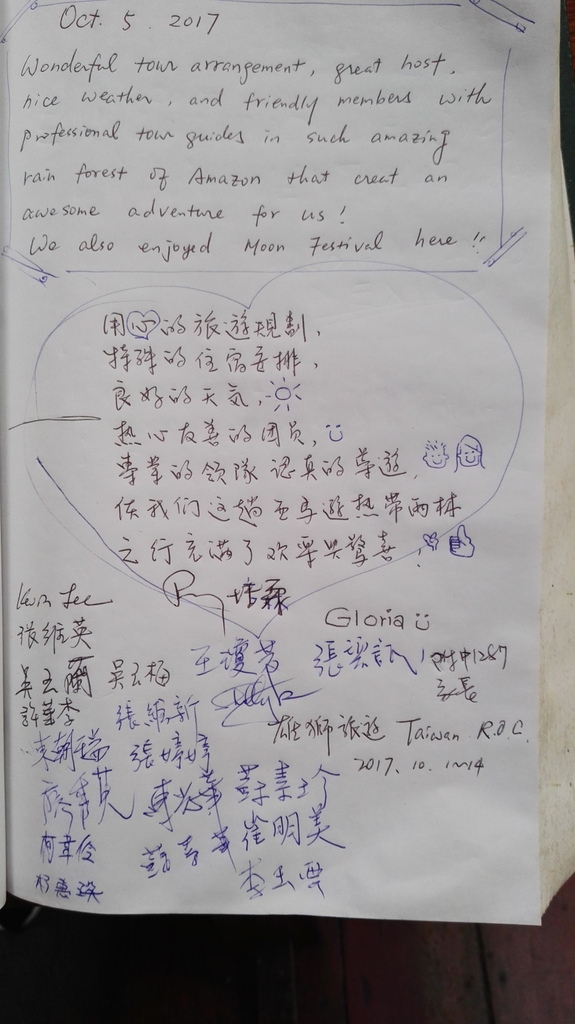 Oct. 5. 2017
Wonderful tour arrangement, great host,
nice weather, and friendly members with
professional tour guides in such amazing
rain forest of Amazon that creat an
awesome adventure for us!
We also enjoyed Moon Festival here!!
用心的旅遊規劃,
特殊的住宿安排,
良好的天氣,
热心友善的团员,
專業的領隊 認真的導遊,
使我们这趟亚马遜热带雨林
之行充满了欢樂與驚喜!
Kevin Lee
培霖
Gloria
張維英
吳玉爾 吳玉梅 王瓊芳
附中1287
家長
張維新
張婷婷
雄獅旅遊 Taiwan R.O.C.
2017. 10. 1~14
蘇素珍
崔明美